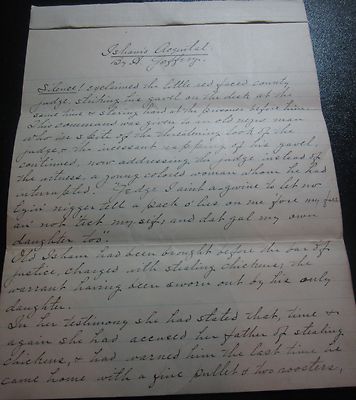 Isham's Acquital
By A. Joffroy.
Silence! exclaimed the little red faced county
judge, striking his gavel on the desk at the
same time & staring hard at the prisoner before him.
This command was given to an old negro man
who in spite of the threatening look of the
judge & the incessant rapping of his gavel,
continued, now addressing the judge instead of
the witness, a young colored woman whom he had
interrupted. "Jedge I aint agwine to let no
lyin' nigger tell a pack o' lies on me fore my face
an' not teck my sef, and dat gal my own
daughter too".
Old Isham had been brought before the bar of
justice, charged with stealing chickens, the
warrant having been sworn out by his only
daughter.
In her testimony she had stated that, time &
again she had accused her father of stealing
chickens, & had warned him the last time he
came home with a five pullet & two roosters,